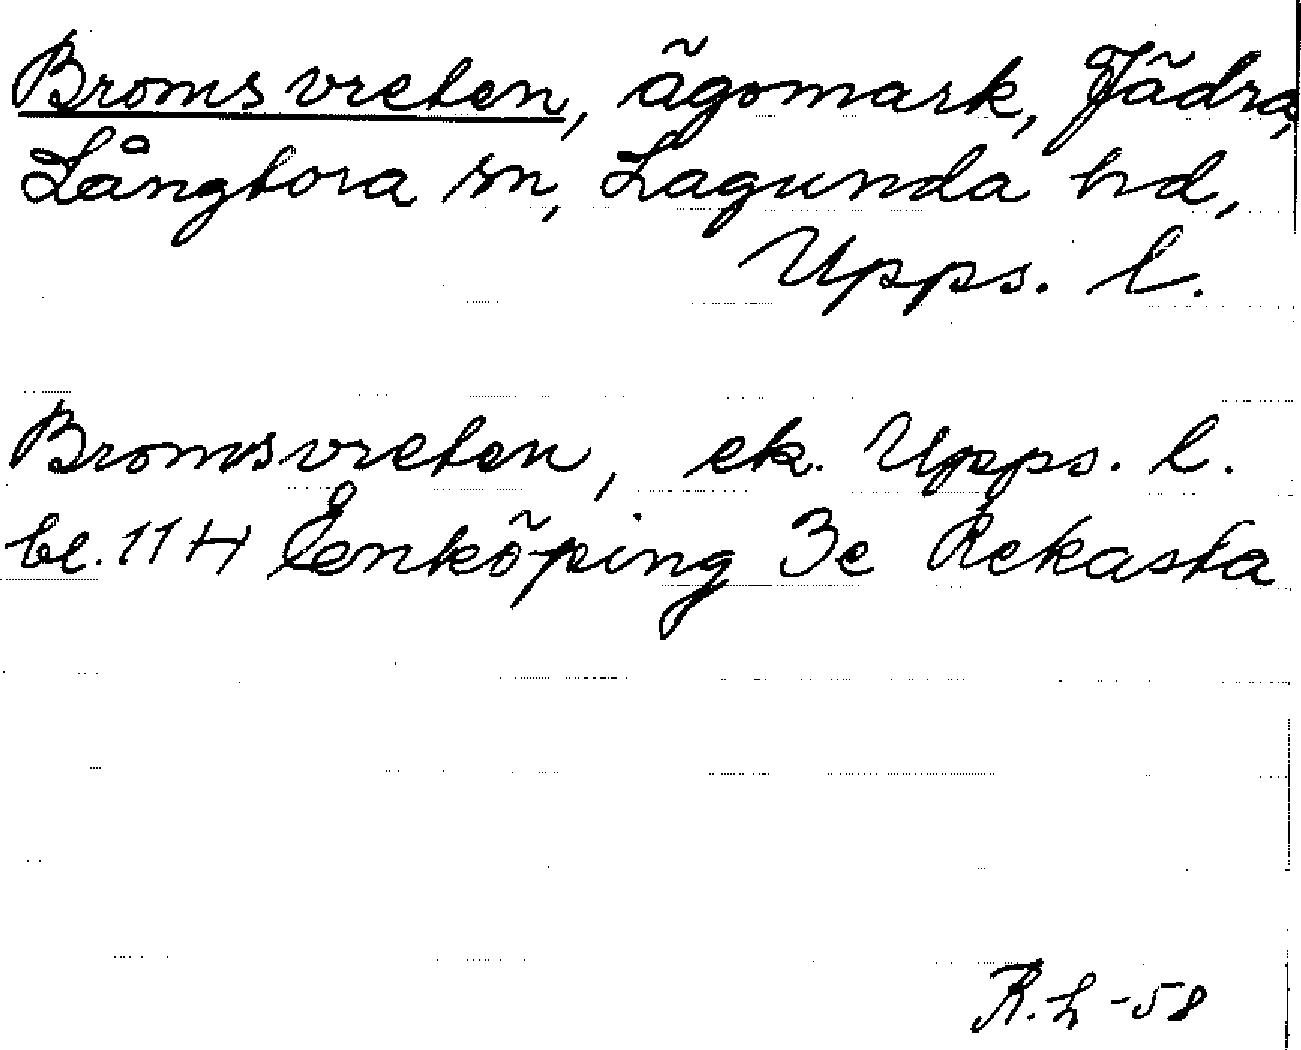 Bromsvreten, ägomark, Jädra,
Långtora sn, Lagunda hd,
Upps. l.
Bromsvreten, ek. Upps. l.
bl. 11 H Enköping 3e Rekasta
R. L -58